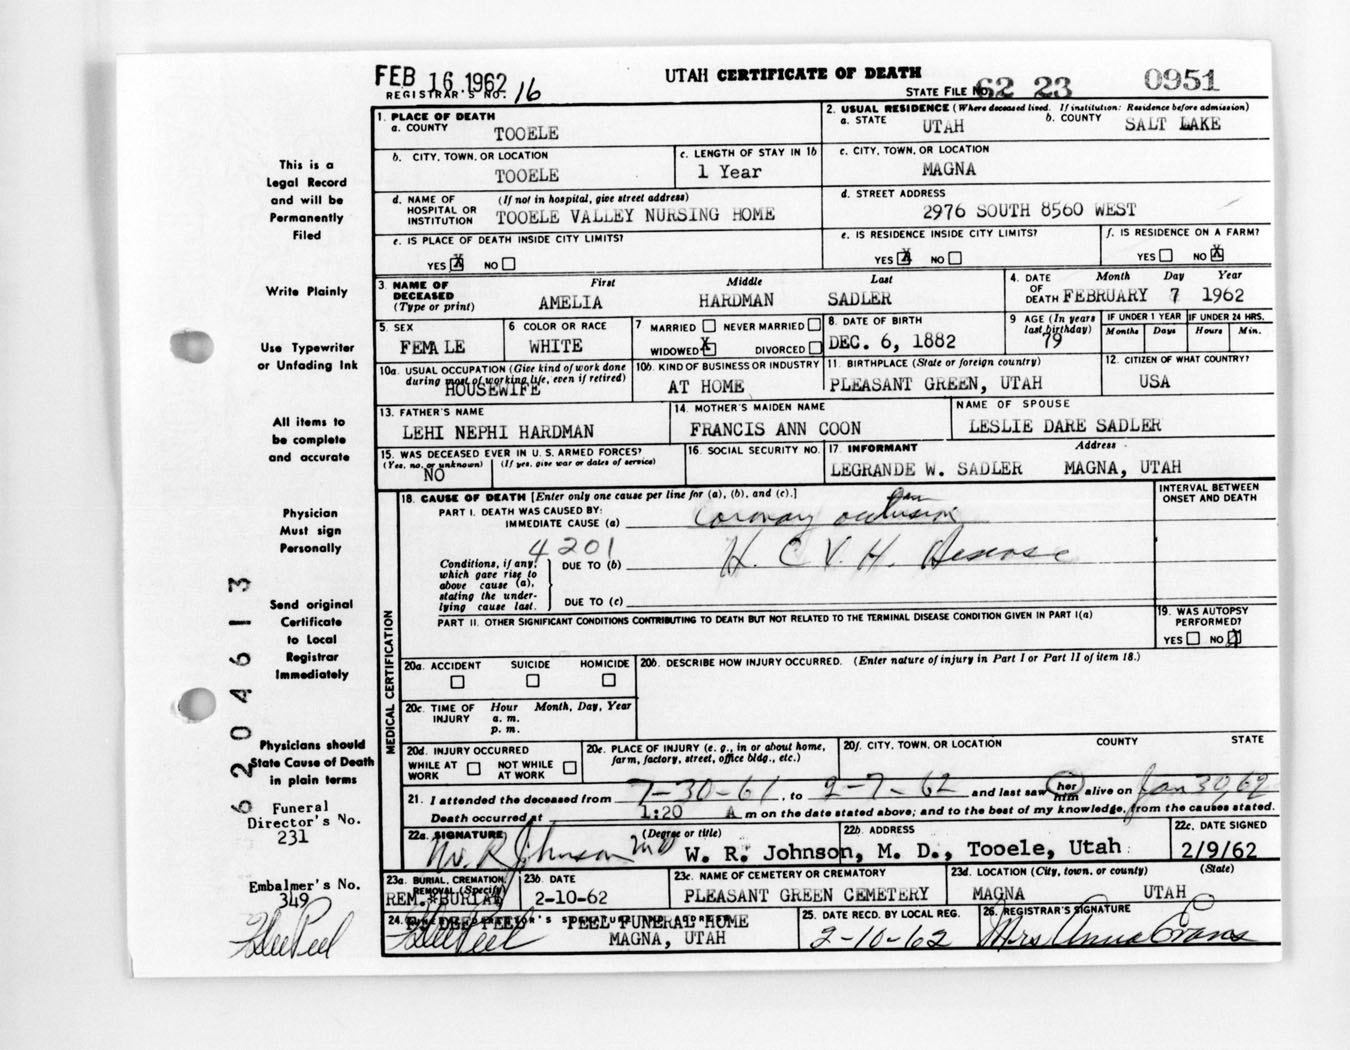 FEB 16 1962
UTAH CERTIFICATE OF DEATH
REGISTRAR'S NO. 16
STATE FILE NO. 62 23 0951
1. PLACE OF DEATH
a. COUNTY TOOELE
2. USUAL RESIDENCE (Where deceased lived. If institution: Residence before admission)
a. STATE UTAH b. COUNTY SALT LAKE
b. CITY, TOWN, OR LOCATION TOOELE
c. LENGTH OF STAY IN 1b 1 Year
c. CITY, TOWN, OR LOCATION MAGNA
d. NAME OF HOSPITAL OR INSTITUTION (If not in hospital, give street address) TOOELE VALLEY NURSING HOME
d. STREET ADDRESS 2976 SOUTH 8560 WEST
e. IS PLACE OF DEATH INSIDE CITY LIMITS?
YES X NO
e. IS RESIDENCE INSIDE CITY LIMITS?
YES X NO
f. IS RESIDENCE ON A FARM?
YES NO X
3. NAME OF DECEASED (Type or print)
First Middle Last
AMELIA HARDMAN SADLER
4. DATE OF DEATH Month Day Year
FEBRUARY 7 1962
5. SEX FEMALE
6 COLOR OR RACE WHITE
7 MARRIED NEVER MARRIED
WIDOWED X DIVORCED
8. DATE OF BIRTH DEC. 6, 1882
9 AGE (In years last birthday) 79
IF UNDER 1 YEAR Months Days
IF UNDER 24 HRS. Hours Min.
10a. USUAL OCCUPATION (Give kind of work done during most of working life, even if retired) HOUSEWIFE
10b. KIND OF BUSINESS OR INDUSTRY AT HOME
11. BIRTHPLACE (State or foreign country) PLEASANT GREEN, UTAH
12. CITIZEN OF WHAT COUNTRY? USA
13. FATHER'S NAME LEHI NEPHI HARDMAN
14. MOTHER'S MAIDEN NAME FRANCIS ANN COON
NAME OF SPOUSE LESLIE DARE SADLER
15. WAS DECEASED EVER IN U. S. ARMED FORCES?
(Yes, no, or unknown) (If yes, give war or dates of service)
NO
16. SOCIAL SECURITY NO.
17. INFORMANT Address
LEGRANDE W. SADLER MAGNA, UTAH
MEDICAL CERTIFICATION
18. CAUSE OF DEATH [Enter only one cause per line for (a), (b), and (c).]
INTERVAL BETWEEN ONSET AND DEATH
PART I. DEATH WAS CAUSED BY:
IMMEDIATE CAUSE (a) Coronary occlusion
4201
Conditions, if any, which gave rise to above cause (a), stating the underlying cause last.
DUE TO (b) H. C. V. H. Disease
DUE TO (c)
PART II. OTHER SIGNIFICANT CONDITIONS CONTRIBUTING TO DEATH BUT NOT RELATED TO THE TERMINAL DISEASE CONDITION GIVEN IN PART I(a)
19. WAS AUTOPSY PERFORMED?
YES NO
20a. ACCIDENT SUICIDE HOMICIDE
20b. DESCRIBE HOW INJURY OCCURRED. (Enter nature of injury in Part I or Part II of item 18.)
20c. TIME OF INJURY Hour Month, Day, Year
a. m.
p. m.
20d. INJURY OCCURRED
WHILE AT WORK NOT WHILE AT WORK
20e. PLACE OF INJURY (e. g., in or about home, farm, factory, street, office bldg., etc.)
20f. CITY, TOWN, OR LOCATION COUNTY STATE
21. I attended the deceased from 7-30-61, to 2-7-62 and last saw her him alive on Jan 30, 62
Death occurred at 1:20 A m on the date stated above; and to the best of my knowledge, from the causes stated.
22a. SIGNATURE (Degree or title)
W. R. Johnson MD
22b. ADDRESS
W. R. Johnson, M. D., Tooele, Utah
22c. DATE SIGNED 2/9/62
23a. BURIAL, CREMATION, REMOVAL (Specify) REM. *BURIAL
23b. DATE 2-10-62
23c. NAME OF CEMETERY OR CREMATORY PLEASANT GREEN CEMETERY
23d. LOCATION (City, town, or county) (State)
MAGNA UTAH
24. PEEL FUNERAL HOME
MAGNA, UTAH
25. DATE RECD. BY LOCAL REG. 2-10-62
26. REGISTRAR'S SIGNATURE Mrs Anna Evans
This is a
Legal Record
and will be
Permanently
Filed
Write Plainly
Use Typewriter
or Unfading Ink
All items to
be complete
and accurate
Physician
Must sign
Personally
Send original
Certificate
to Local
Registrar
Immediately
Physicians should
State Cause of Death
in plain terms
Funeral
Director's No.
231
Embalmer's No.
349
6204613